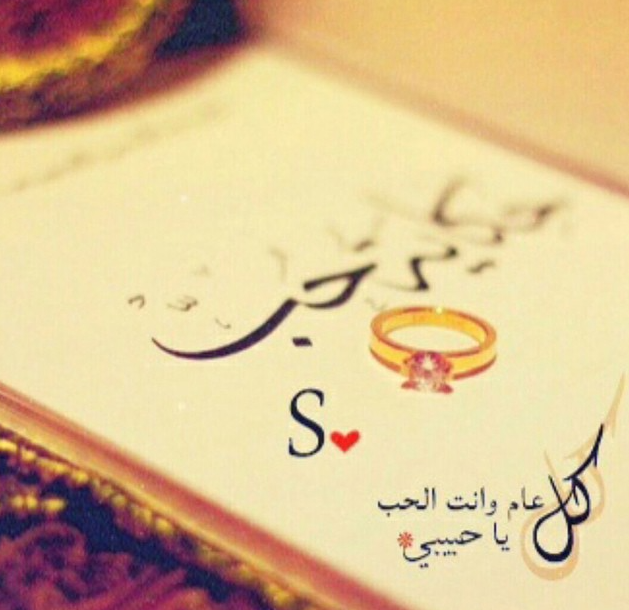 حب
S
كل عام وانت الحب
يا حبيبي